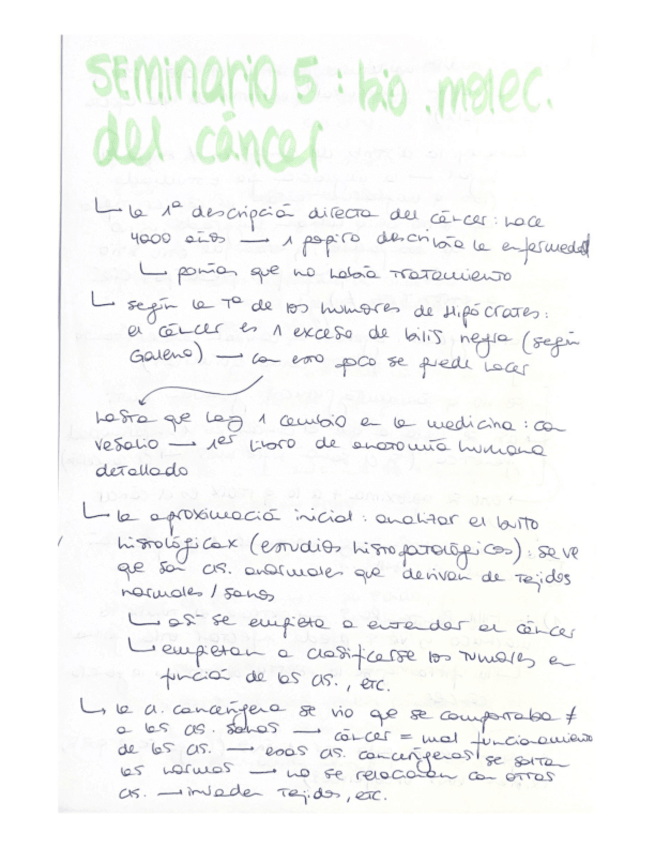 SEMINARIO 5 : bio. molec.
del cáncer
↳ la 1ª descripción directa del cáncer : hace
4000 años → 1 papiro describía la enfermedad
↳ ponían que no había tratamiento
↳ según la Tª de los humores de Hipócrates :
el cáncer es 1 exceso de bilis negra (según
Galeno) → con esto poco se puede hacer
hasta que hay 1 cambio en la medicina : con
Vesalio → 1er libro de anatomía humana
detallado
↳ la aproximación inicial : analizar el bulto
histológicax (estudios histopatológicos) : se ve
que son cls. anormales que derivan de tejidos
normales / sanos
↳ así se empieza a entender el cáncer
↳ empiezan a clasificarse los tumores en
función de las cls., etc.
↳ la cl. cancerígena se vio que se comportaba ≠
a las cls. sanas → cáncer = mal funcionamiento
de las cls. → esas cls. cancerígenas se saltan
las normas → no se relacionan con otras
cls. → invaden tejidos, etc.